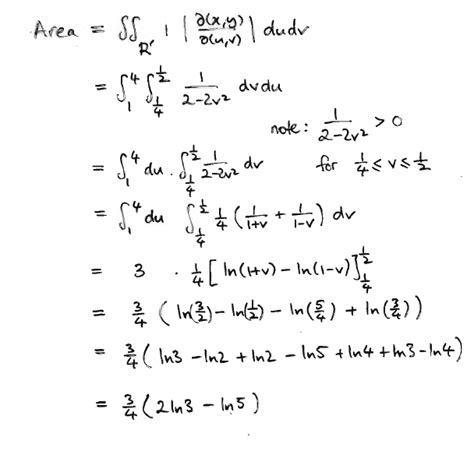 Area = ∬_{R'} 1 |∂(x,y)/∂(u,v)| du dv
= ∫_1^4 ∫_{1/4}^{1/2} 1/(2-2v²) dv du
note: 1/(2-2v²) > 0
= ∫_1^4 du · ∫_{1/4}^{1/2} 1/(2-2v²) dv for 1/4 ≤ v ≤ 1/2
= ∫_1^4 du ∫_{1/4}^{1/2} 1/4 (1/(1+v) + 1/(1-v)) dv
= 3 · 1/4 [ln(1+v) - ln(1-v)]_{1/4}^{1/2}
= 3/4 (ln(3/2) - ln(1/2) - ln(5/4) + ln(3/4))
= 3/4 (ln3 - ln2 + ln2 - ln5 + ln4 + ln3 - ln4)
= 3/4 (2ln3 - ln5)